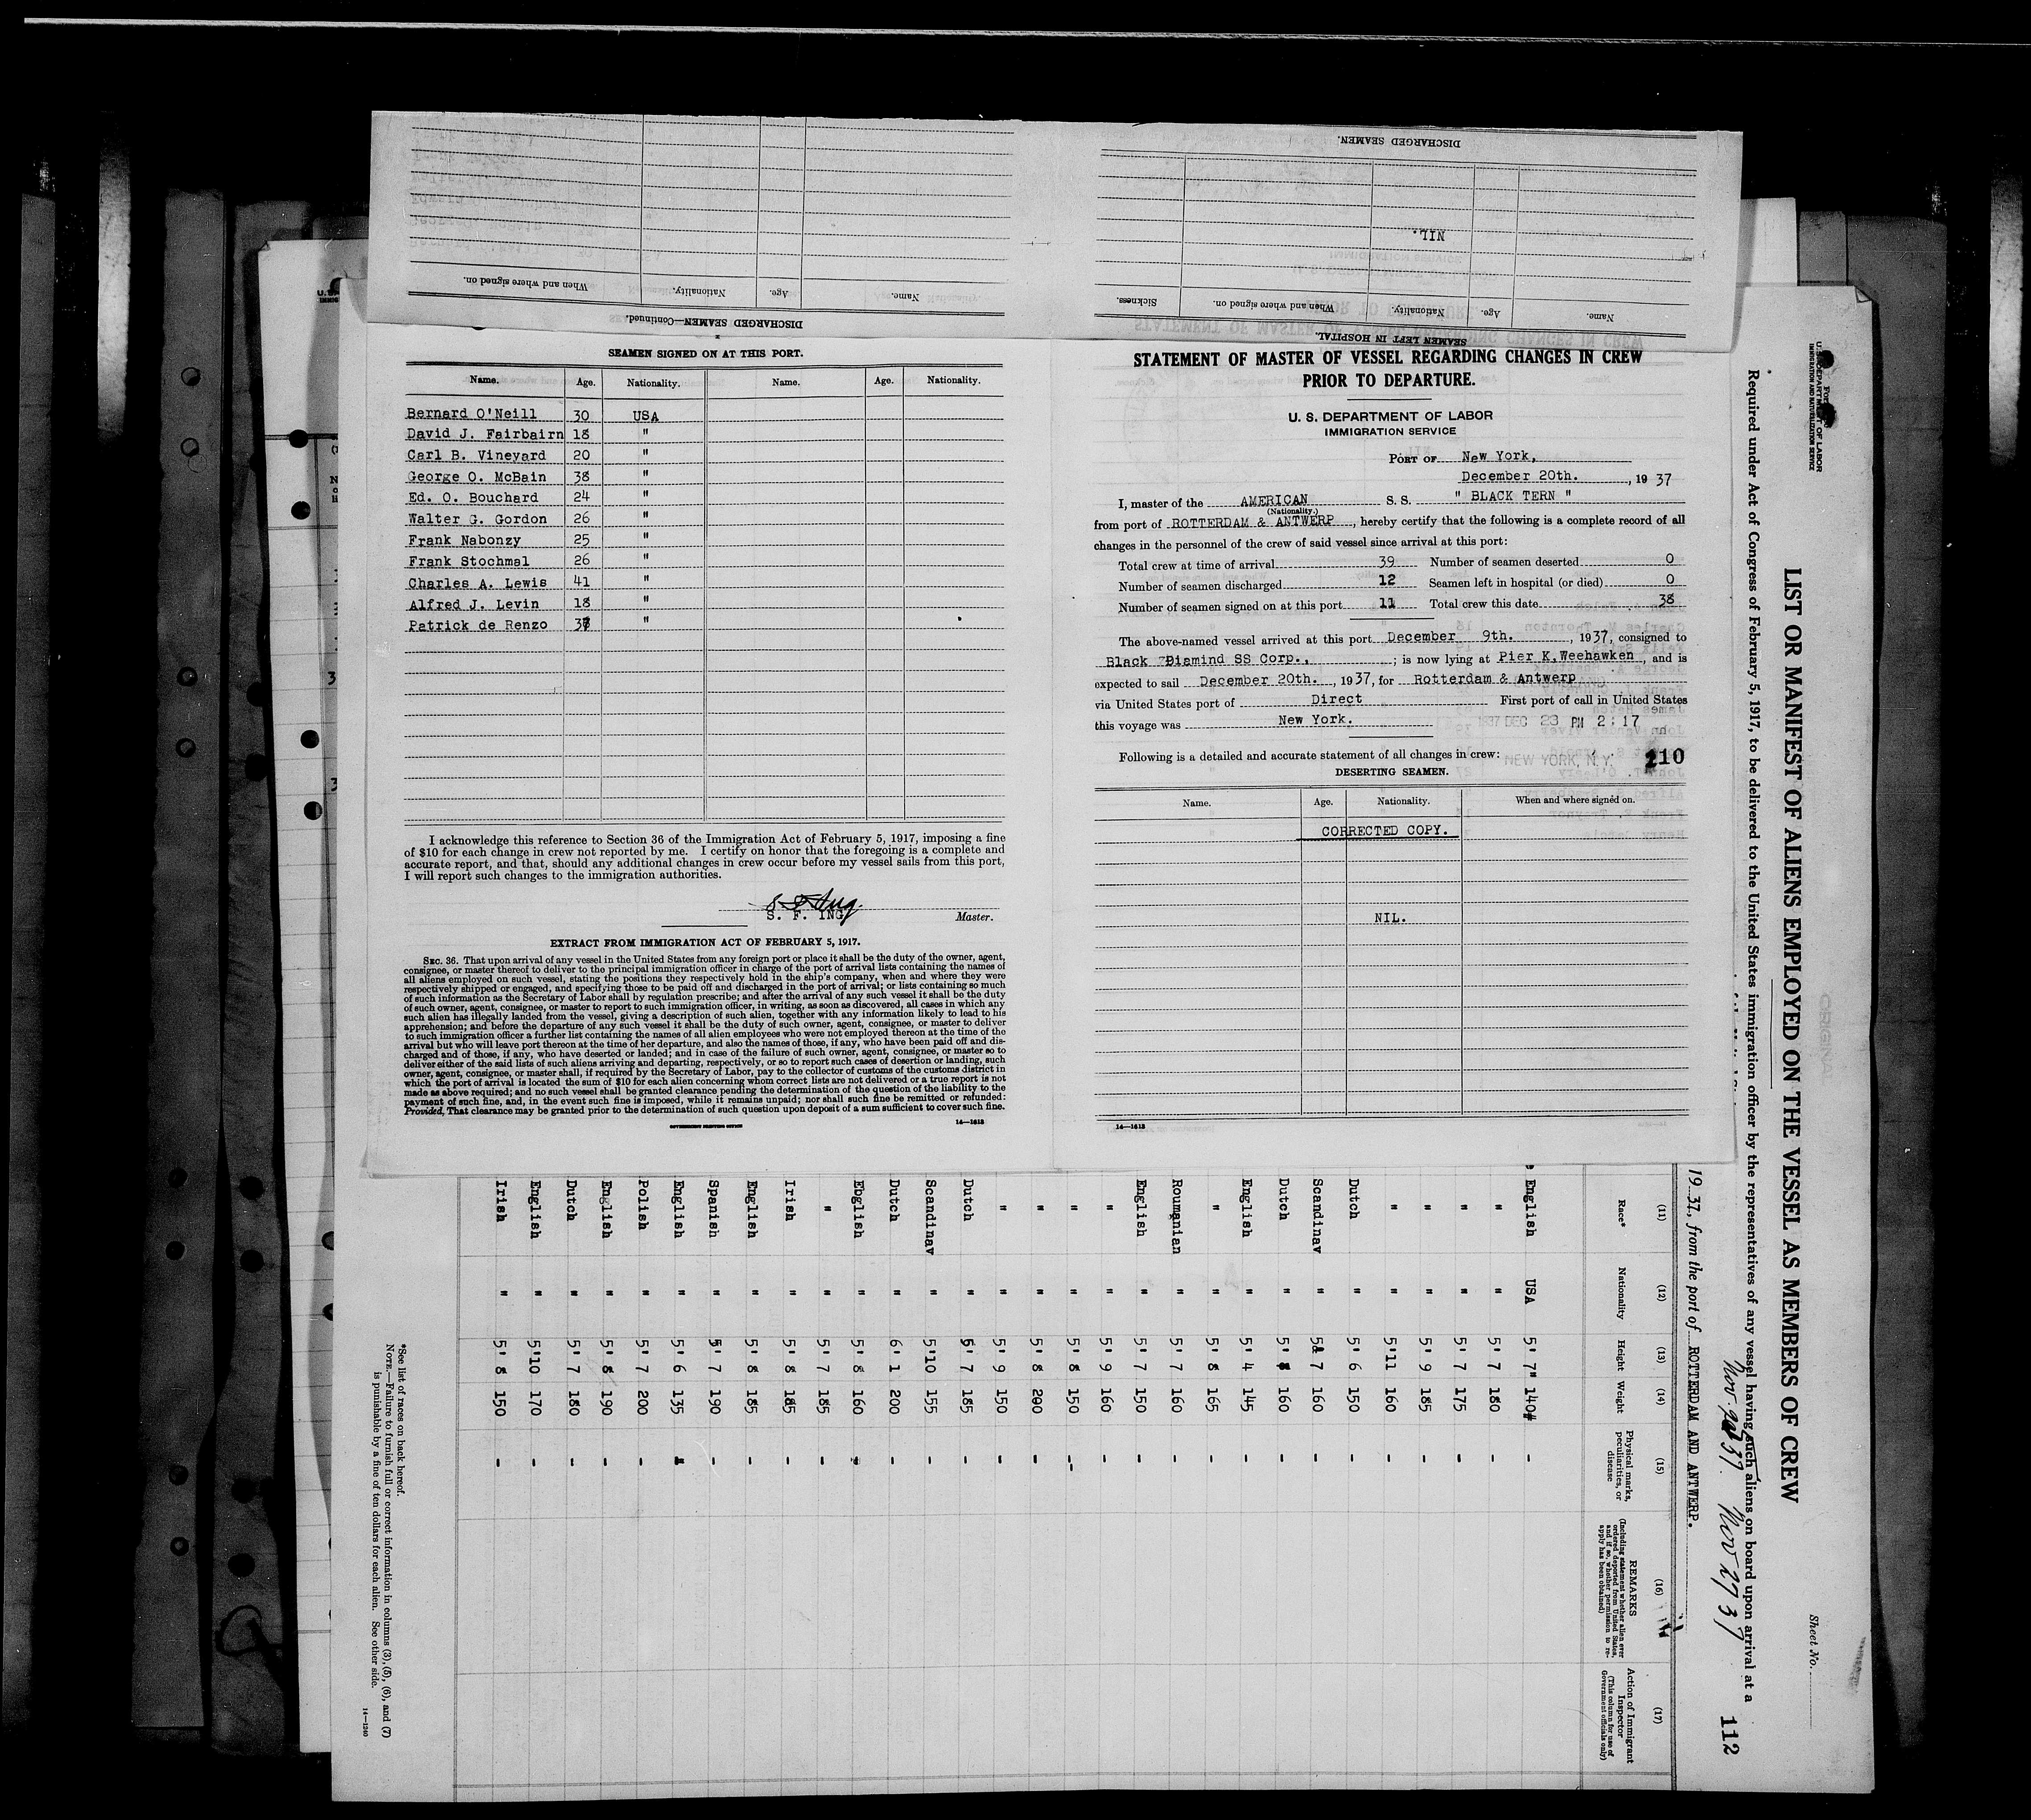 DISCHARGED SEAMEN.
NIL.
Name. Age. Nationality. When and where signed on. Sickness.
SEAMEN LEFT IN HOSPITAL.
Name. Age. Nationality. When and where signed on.
DISCHARGED SEAMEN—Continued.
SEAMEN SIGNED ON AT THIS PORT.
Name. Age. Nationality. Name. Age. Nationality.
Bernard O'Neill 30 USA
David J. Fairbairn 18 "
Carl B. Vineyard 20 "
George O. McBain 38 "
Ed. O. Bouchard 24 "
Walter G. Gordon 26 "
Frank Nabonzy 25 "
Frank Stochmal 26 "
Charles A. Lewis 41 "
Alfred J. Levin 18 "
Patrick de Renzo "
I acknowledge this reference to Section 36 of the Immigration Act of February 5, 1917, imposing a fine
of $10 for each change in crew not reported by me. I certify on honor that the foregoing is a complete and
accurate report, and that, should any additional changes in crew occur before my vessel sails from this port,
I will report such changes to the immigration authorities.
S. F. ING Master.
EXTRACT FROM IMMIGRATION ACT OF FEBRUARY 5, 1917.
SEC. 36. That upon arrival of any vessel in the United States from any foreign port or place it shall be the duty of the owner, agent,
consignee, or master thereof to deliver to the principal immigration officer in charge of the port of arrival lists containing the names of
all aliens employed on such vessel, stating the positions they respectively hold in the ship's company, when and where they were
respectively shipped or engaged, and specifying those to be paid off and discharged in the port of arrival; or lists containing so much
of such information as the Secretary of Labor shall by regulation prescribe; and after the arrival of any such vessel it shall be the duty
of such owner, agent, consignee, or master to report to such immigration officer, in writing, as soon as discovered, all cases in which any
such alien has illegally landed from the vessel, giving a description of such alien, together with any information likely to lead to his
apprehension; and before the departure of any such vessel it shall be the duty of such owner, agent, consignee, or master to deliver
to such immigration officer a further list containing the names of all alien employees who were not employed thereon at the time of the
arrival but who will leave port thereon at the time of her departure, and also the names of those, if any, who have been paid off and dis-
charged and of those, if any, who have deserted or landed; and in case of the failure of such owner, agent, consignee, or master so to
deliver either of the said lists of such aliens arriving and departing, respectively, or so to report such cases of desertion or landing, such
owner, agent, consignee, or master shall, if required by the Secretary of Labor, pay to the collector of customs of the customs district in
which the port of arrival is located the sum of $10 for each alien concerning whom correct lists are not delivered or a true report is not
made as above required; and no such vessel shall be granted clearance pending the determination of the question of the liability to the
payment of such fine, and, in the event such fine is imposed, while it remains unpaid; nor shall such fine be remitted or refunded:
Provided, That clearance may be granted prior to the determination of such question upon deposit of a sum sufficient to cover such fine.
GOVERNMENT PRINTING OFFICE 14—1613
STATEMENT OF MASTER OF VESSEL REGARDING CHANGES IN CREW
PRIOR TO DEPARTURE.
U. S. DEPARTMENT OF LABOR
IMMIGRATION SERVICE
PORT OF New York,
December 20th., 1937
I, master of the AMERICAN S. S. " BLACK TERN "
(Nationality.)
from port of ROTTERDAM & ANTWERP, hereby certify that the following is a complete record of all
changes in the personnel of the crew of said vessel since arrival at this port:
Total crew at time of arrival 39 Number of seamen deserted 0
Number of seamen discharged 12 Seamen left in hospital (or died) 0
Number of seamen signed on at this port 11 Total crew this date 38
The above-named vessel arrived at this port December 9th., 1937, consigned to
Black Diamind SS Corp., ; is now lying at Pier K, Weehawken, and is
expected to sail December 20th., 1937, for Rotterdam & Antwerp
via United States port of Direct First port of call in United States
this voyage was New York.
1937 DEC 23 PM 2:17
Following is a detailed and accurate statement of all changes in crew:
NEW YORK, N.Y. 110
DESERTING SEAMEN.
Name. Age. Nationality. When and where signed on.
CORRECTED COPY.
NIL.
14—1613
U. S. DEPARTMENT OF LABOR
IMMIGRATION AND NATURALIZATION SERVICE
Sheet No.
LIST OR MANIFEST OF ALIENS EMPLOYED ON THE VESSEL AS MEMBERS OF CREW
Required under Act of Congress of February 5, 1917, to be delivered to the United States immigration officer by the representatives of any vessel having such aliens on board upon arrival at a
Nov 27 37
112
1937, from the port of ROTTERDAM AND ANTWERP.
(11) (12) (13) (14) (15) (16) (17)
Race* Nationality Height Weight Physical marks, peculiarities, or disease REMARKS (Including statement whether alien ever ordered deported from United States, and if so, whether permission to re-apply has been obtained) Action of Immigrant Inspector (This column for use of Government officials only)
English USA 5' 7" 140# -
" " 5' 7 180 -
" " 5' 7 175 -
" " 5' 9 185 -
" " 5'11 160 -
Dutch " 5' 6 150 -
Scandinav " 7 160 -
Dutch " 5' 160 -
English " 5' 4 145 -
" " 5' 8 165 -
Roumanian " 5' 7 160 -
English " 5' 7 150 -
" " 5' 9 160 -
" " 5' 8 150 -
" " 5' 8 290 -
" " 5' 9 150 -
Dutch " 5' 7 185 -
Scandinav " 5'10 155 -
Dutch " 6' 1 200 -
Ebglish " 5' 8 160 -
" " 5' 7 185 -
Irish " 5' 8 185 -
English " 5' 8 185 -
Spanish " 5' 7 190 -
English " 5' 6 135 -
Polish " 5' 7 200 -
English " 5' 8 190 -
Dutch " 5' 7 180 -
English " 5'10 170 -
Irish " 5' 8 150 -
*See list of races on back hereof.
NOTE.—Failure to furnish full or correct information in columns (3), (5), (6), and (7)
is punishable by a fine of ten dollars for each alien. See other side.
14—1240